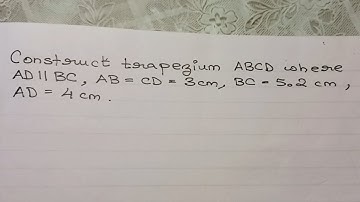 Construct trapezium ABCD where
AD || BC, AB = CD = 3 cm, BC = 5.2 cm,
AD = 4 cm.